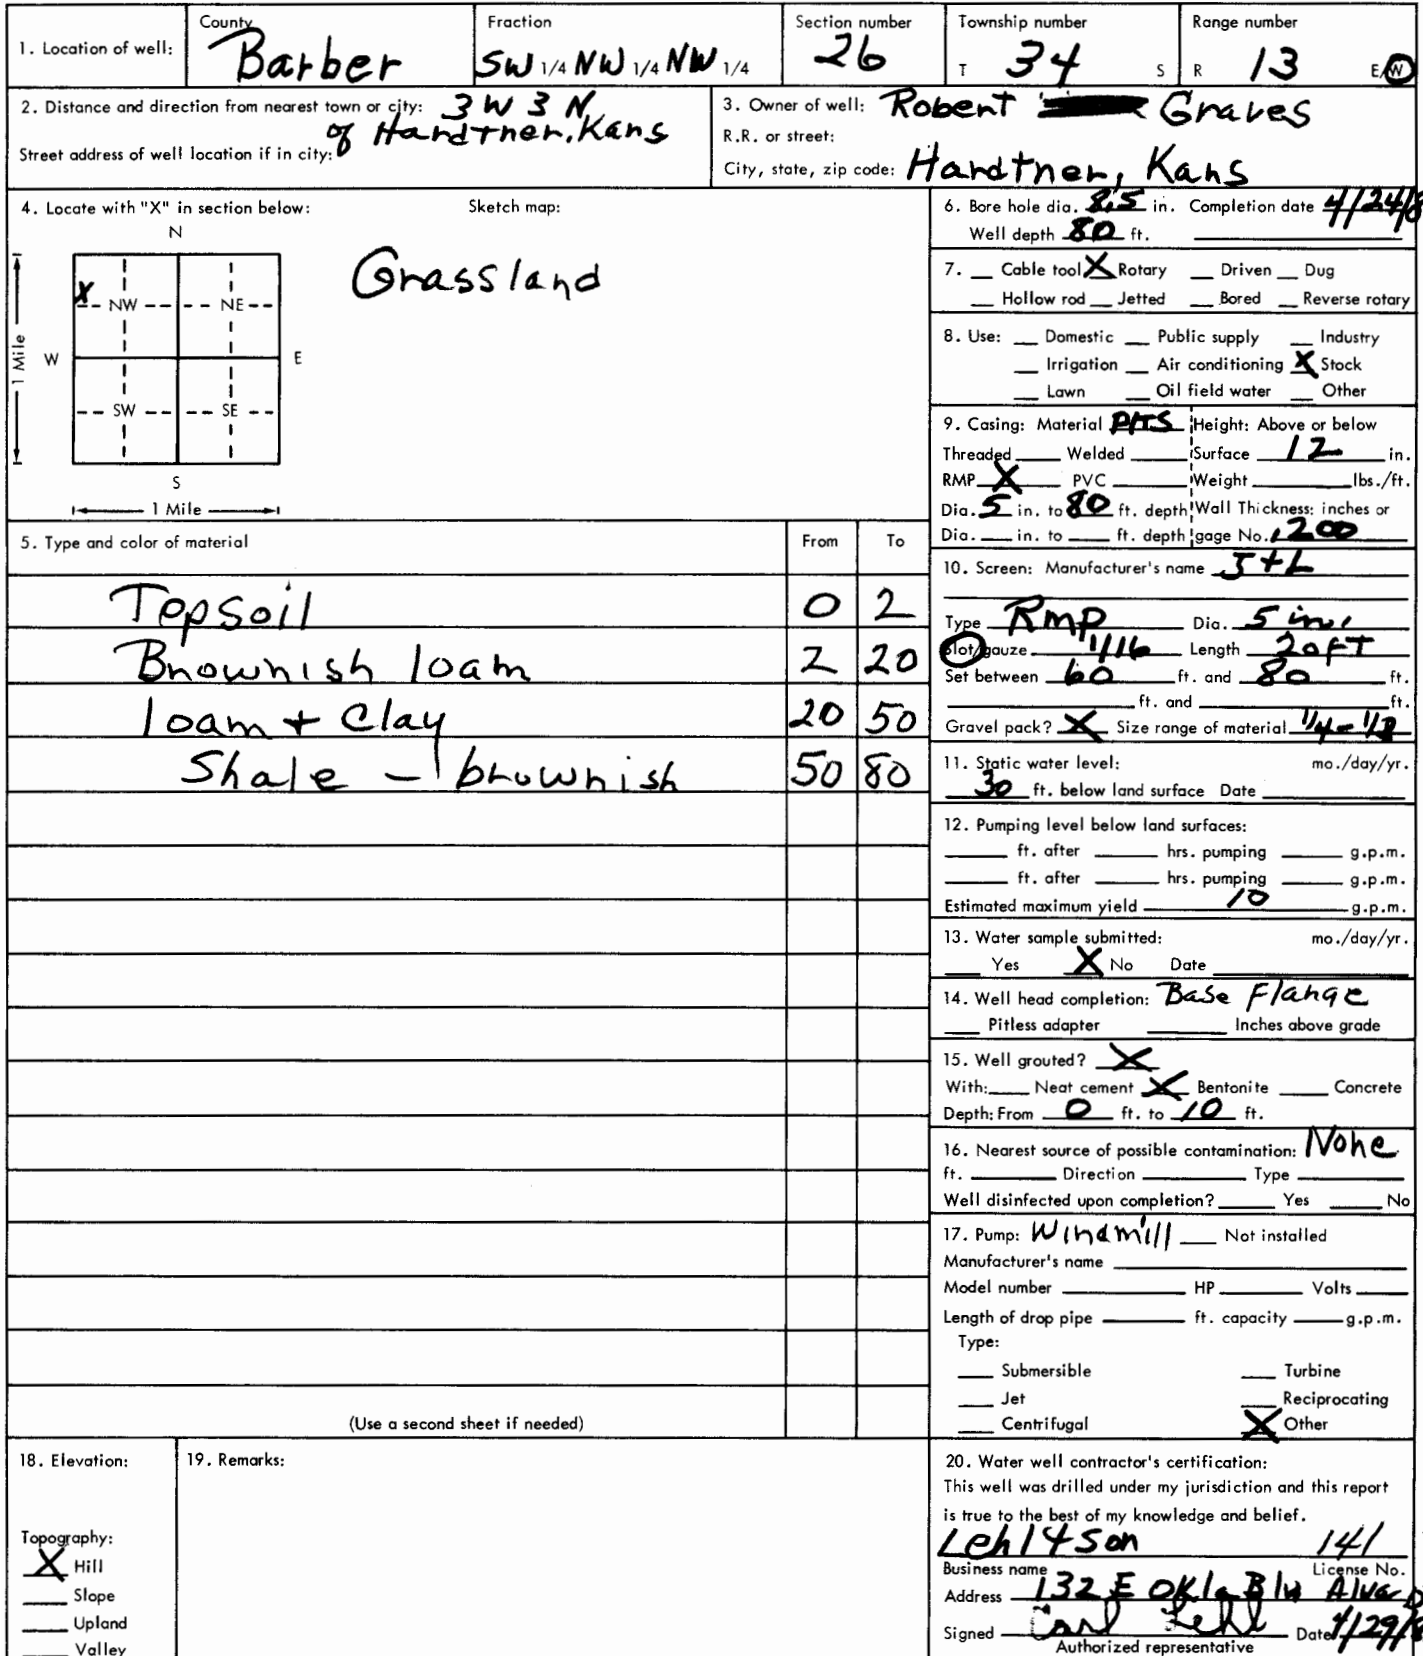 1. Location of well: County Barber Fraction SW 1/4 NW 1/4 NW 1/4 Section number 26 Township number T 34 S Range number R 13 E/W
2. Distance and direction from nearest town or city: 3 W 3 N
of Hardtner, Kans
Street address of well location if in city:
3. Owner of well: Robert Graves
R.R. or street:
City, state, zip code: Hardtner, Kans
4. Locate with "X" in section below: Sketch map:
N
X
NW NE
W E
SW SE
S
1 Mile
1 Mile
Grassland
5. Type and color of material From To
Tepsoil 0 2
Brownish loam 2 20
loam + Clay 20 50
Shale - brownish 50 80
(Use a second sheet if needed)
6. Bore hole dia. 8.5 in. Completion date 4/24/8
Well depth 80 ft.
7. Cable tool X Rotary Driven Dug
Hollow rod Jetted Bored Reverse rotary
8. Use: Domestic Public supply Industry
Irrigation Air conditioning X Stock
Lawn Oil field water Other
9. Casing: Material Height: Above or below
Threaded Welded Surface 12 in.
RMP X PVC Weight lbs./ft.
Dia. 5 in. to 80 ft. depth Wall Thickness: inches or
Dia. in. to ft. depth gage No. .200
10. Screen: Manufacturer's name J+L
Type Rmp Dia. 5 in.
Slot/gauze 1/16 Length 20 FT
Set between 60 ft. and 80 ft.
ft. and ft.
Gravel pack? X Size range of material 1/4 - 1/8
11. Static water level: mo./day/yr.
30 ft. below land surface Date
12. Pumping level below land surfaces:
ft. after hrs. pumping g.p.m.
ft. after hrs. pumping g.p.m.
Estimated maximum yield 10 g.p.m.
13. Water sample submitted: mo./day/yr.
Yes X No Date
14. Well head completion: Base Flange
Pitless adapter Inches above grade
15. Well grouted? X
With: Neat cement X Bentonite Concrete
Depth: From 0 ft. to 10 ft.
16. Nearest source of possible contamination: None
ft. Direction Type
Well disinfected upon completion? Yes No
17. Pump: Windmill Not installed
Manufacturer's name
Model number HP Volts
Length of drop pipe ft. capacity g.p.m.
Type:
Submersible Turbine
Jet Reciprocating
Centrifugal X Other
18. Elevation:
Topography:
X Hill
Slope
Upland
Valley
19. Remarks:
20. Water well contractor's certification:
This well was drilled under my jurisdiction and this report
is true to the best of my knowledge and belief.
Lehl 4 Son 141
Business name License No.
Address 132 E Okla Blv Alva
Signed Carl Lehl Date 4/29/8
Authorized representative